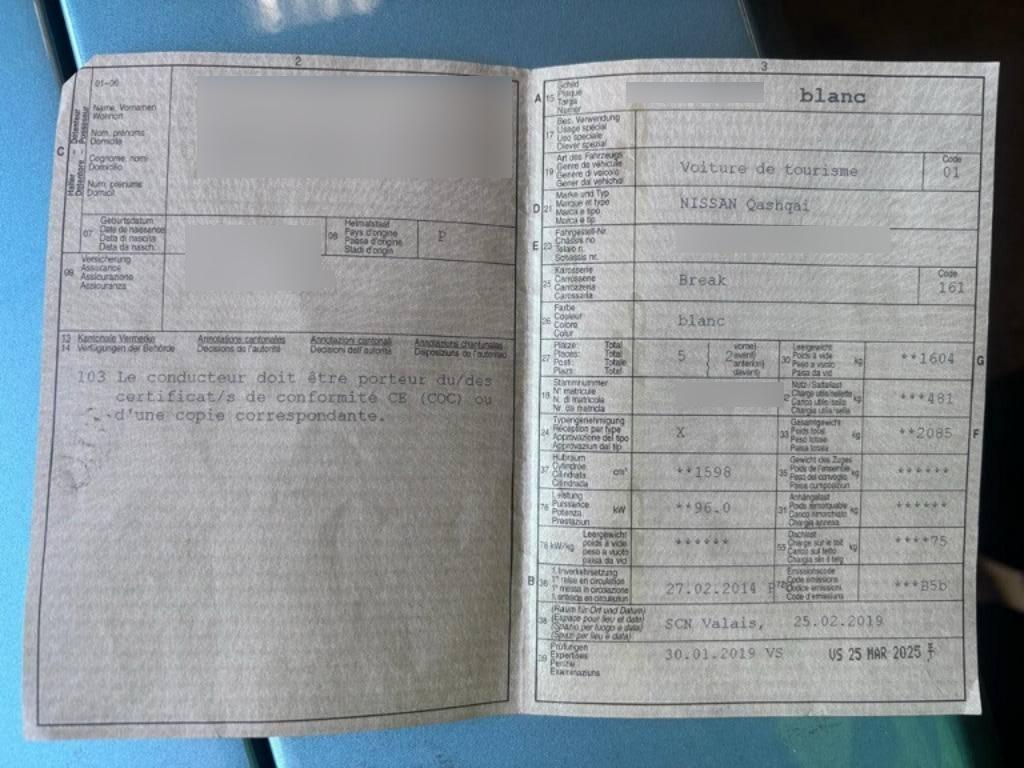 2
01-06
Halter - Détenteur
Detentore - Possessur
C
Name, Vornamen
Wohnort
Nom, prénoms
Domicile
Cognome, nomi
Domicilio
Num, prenums
Domicil
07
Geburtsdatum
Date de naissance
Data di nascita
Data da nasch.
08
Heimatstaat
Pays d'origine
Paese d'origine
Stadi d'origin
P
09
Versicherung
Assurance
Assicurazione
Assicuranza
13 Kantonale Vermerke Annotations cantonales Annotazioni cantonali Annotaziuns chantunalas
14 Verfügungen der Behörde Décisions de l'autorité Decisioni dell'autorità Disposiziuns da l'autoritad
103 Le conducteur doit être porteur du/des
certificat/s de conformité CE (COC) ou
d'une copie correspondante.
3
A 15
Schild
Plaque
Targa
Numer
blanc
17
Bes. Verwendung
Usage spécial
Uso speciale
Diever spezial
19
Art des Fahrzeugs
Genre de véhicule
Genere di veicolo
Gener dal vehichel
Voiture de tourisme
Code
01
D 21
Marke und Typ
Marque et type
Marca e tipo
Marca e tip
NISSAN Qashqai
E 23
Fahrgestell-Nr.
Châssis no
Telaio n.
Schassis nr.
25
Karosserie
Carrosserie
Carrozzeria
Carossaria
Break
Code
161
26
Farbe
Couleur
Colore
Colur
blanc
27
Plätze: Total
Places: Total
Posti: Totale
Plazs: Total
5
2
vorne)
avant)
anteriori)
davant)
30
Leergewicht
Poids à vide
Peso a vuoto
Paisa da vid
kg
**1604
G
18
Stammnummer
N° matricule
N. di matricola
Nr. da matricla
Nutz-/Sattellast
Charge utile/sellette
Carico utile/sella
Chargia utila/sella
kg
***481
24
Typengenehmigung
Réception par type
Approvazione del tipo
Approvaziun dal tip
X
33
Gesamtgewicht
Poids total
Peso totale
Paisa totala
kg
**2085
F
37
Hubraum
Cylindrée
Cilindrata
Cilindrada
cm³
**1598
35
Gewicht des Zuges
Poids de l'ensemble
Peso del convoglio
Paisa cumposiziun
kg
******
76
Leistung
Puissance
Potenza
Prestaziun
kW
**96.0
31
Anhängelast
Poids remorquable
Carico rimorchiato
Chargia annexa
kg
******
78 kW/kg
Leergewicht
poids à vide
peso a vuoto
paisa da vid
******
55
Dachlast
Charge sur le toit
Carico sul tetto
Chargia sin il tetg
kg
****75
B 36
1. Inverkehrsetzung
1re mise en circulation
1a messa in circolazione
1. entrada en circulaziun
27.02.2014 P
72
Emissionscode
Code émissions
Codice emissioni
Code d'emissiuns
***B5b
38
(Raum für Ort und Datum)
(Espace pour lieu et date)
(Spazio per luogo e data)
(Spazi per lieu e data)
SCN Valais, 25.02.2019
39
Prüfungen
Expertises
Perizie
Examinaziuns
30.01.2019 VS
VS 25 MAR 2025